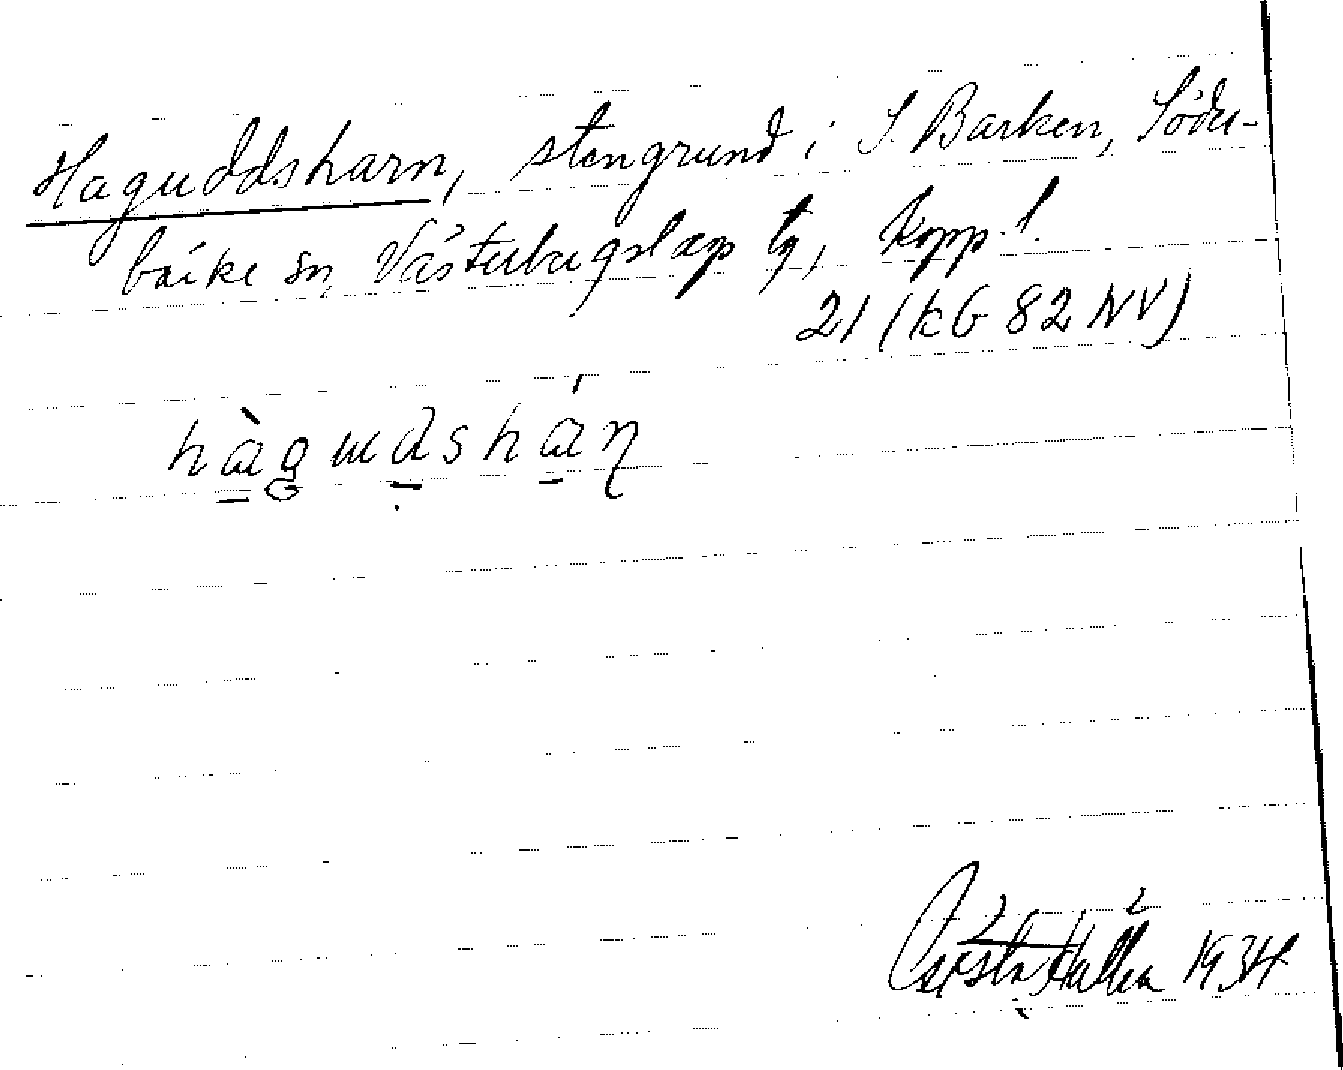 Haguddsharn, stengrund i S. Barken, Söder-
bärke sn, Västerbergslags tg, Kopp. l.
21 (kG 82 NV)
hàgudshán
1934